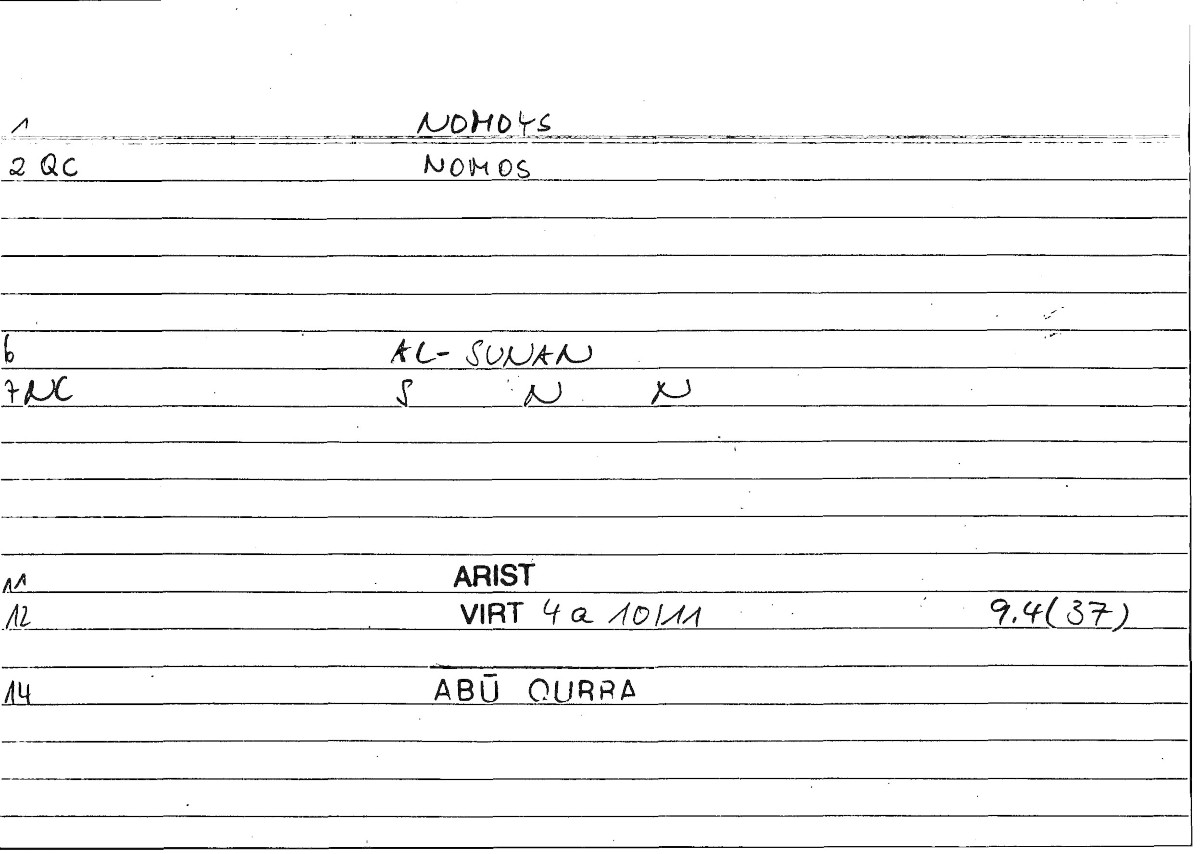 1 NOMOYS
2 QC NOMOS
6 AL-SUNAN
7NC S N N
11 ARIST
12 VIRT 4 a 10/11 9.4(37)
14 ABŪ QURRA